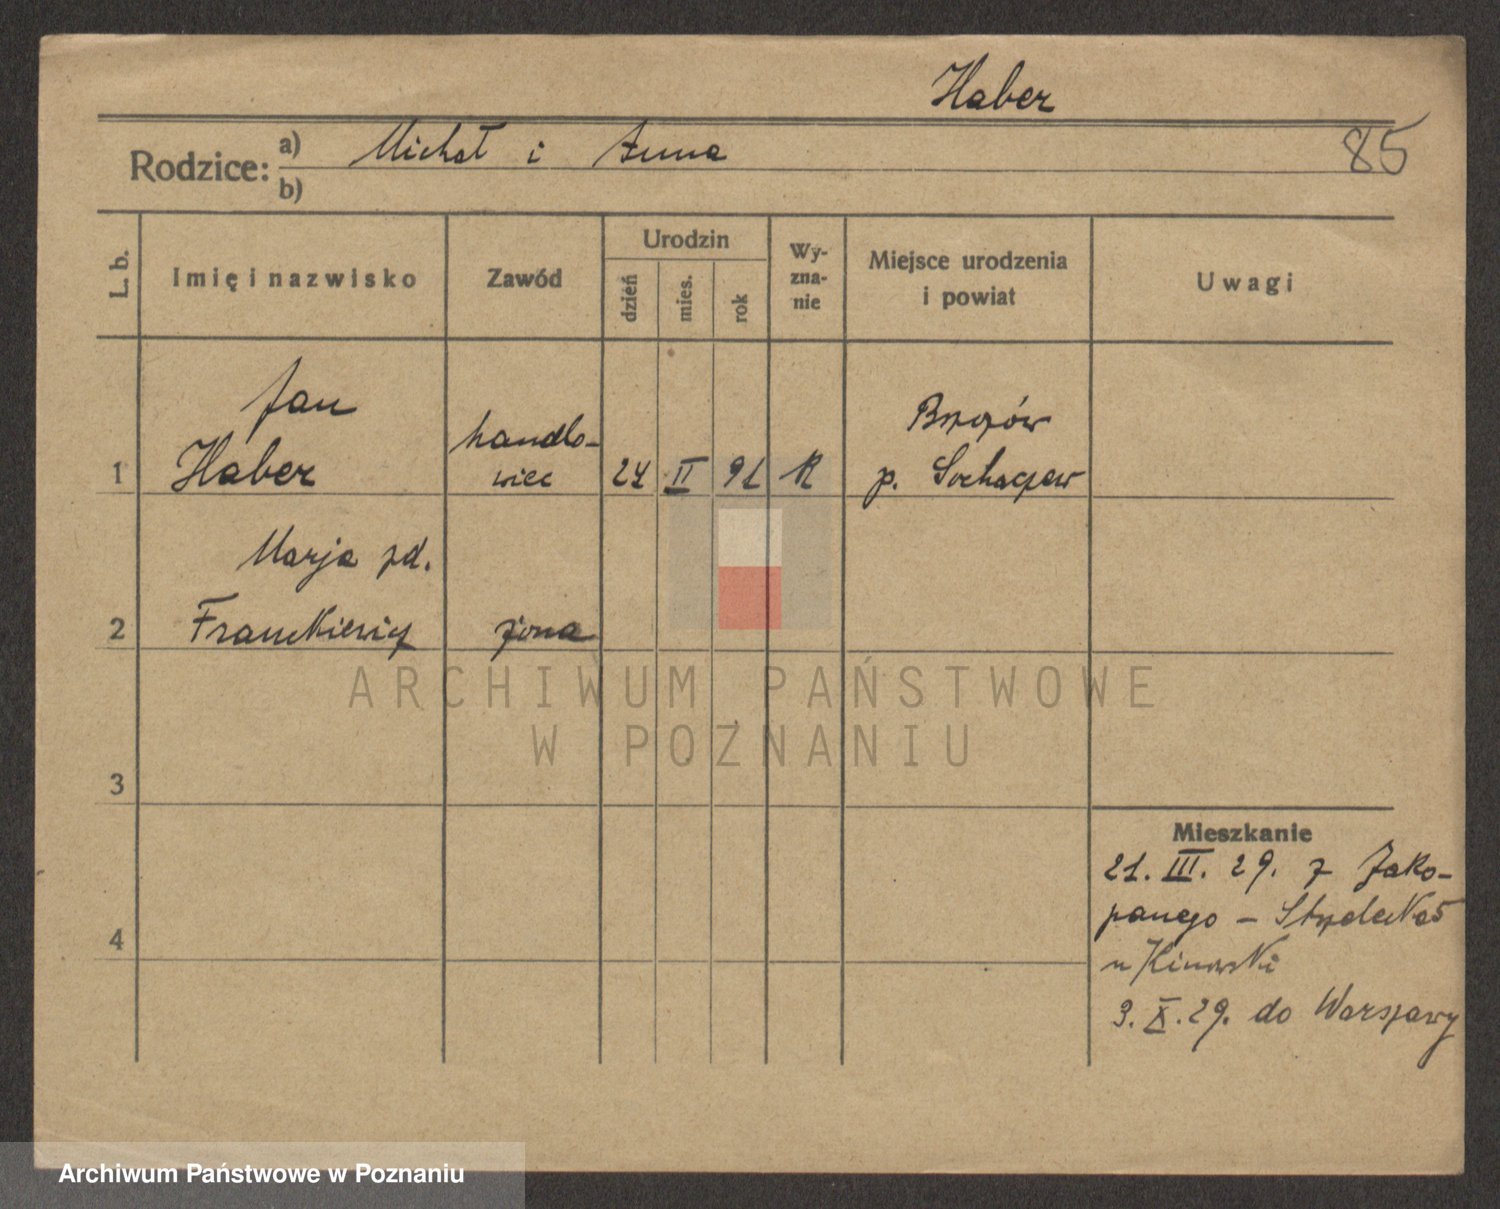 Haber
Rodzice: a) Michał i Anna
85
b)
L. b.
Imię i nazwisko
Zawód
Urodzin
dzień
mies.
rok
Wy-
zna-
nie
Miejsce urodzenia
i powiat
Uwagi
Jan
Haber
handlo-
wiec
1
24 II 91 R
Brzozów
p. Sochaczew
Marja zd.
2 Franckiewicz żona
ARCHIWUM PAŃSTWOWE
W POZNANIU
3
Mieszkanie
21. III. 29. z Zako-
panego – Strzelecka 5
4
3. X. 29. do Warszawy
Archiwum Państwowe w Poznaniu